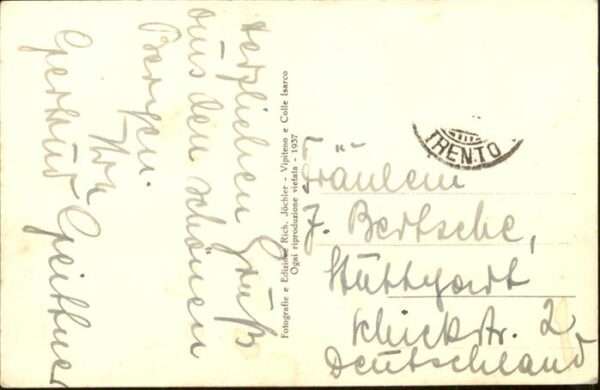 Herzlichen Gruß
aus den schönen
Bergen.
Ihre
Gertrud Geittner
Fotografie e Edizione Rich. Jöchler - Vipiteno e Colle Isarco
Ogni riproduzione vietata - 1937
TRENTO
Fräulein
J. Bertsche,
Stuttgart
Schickstr. 2
Deutschland